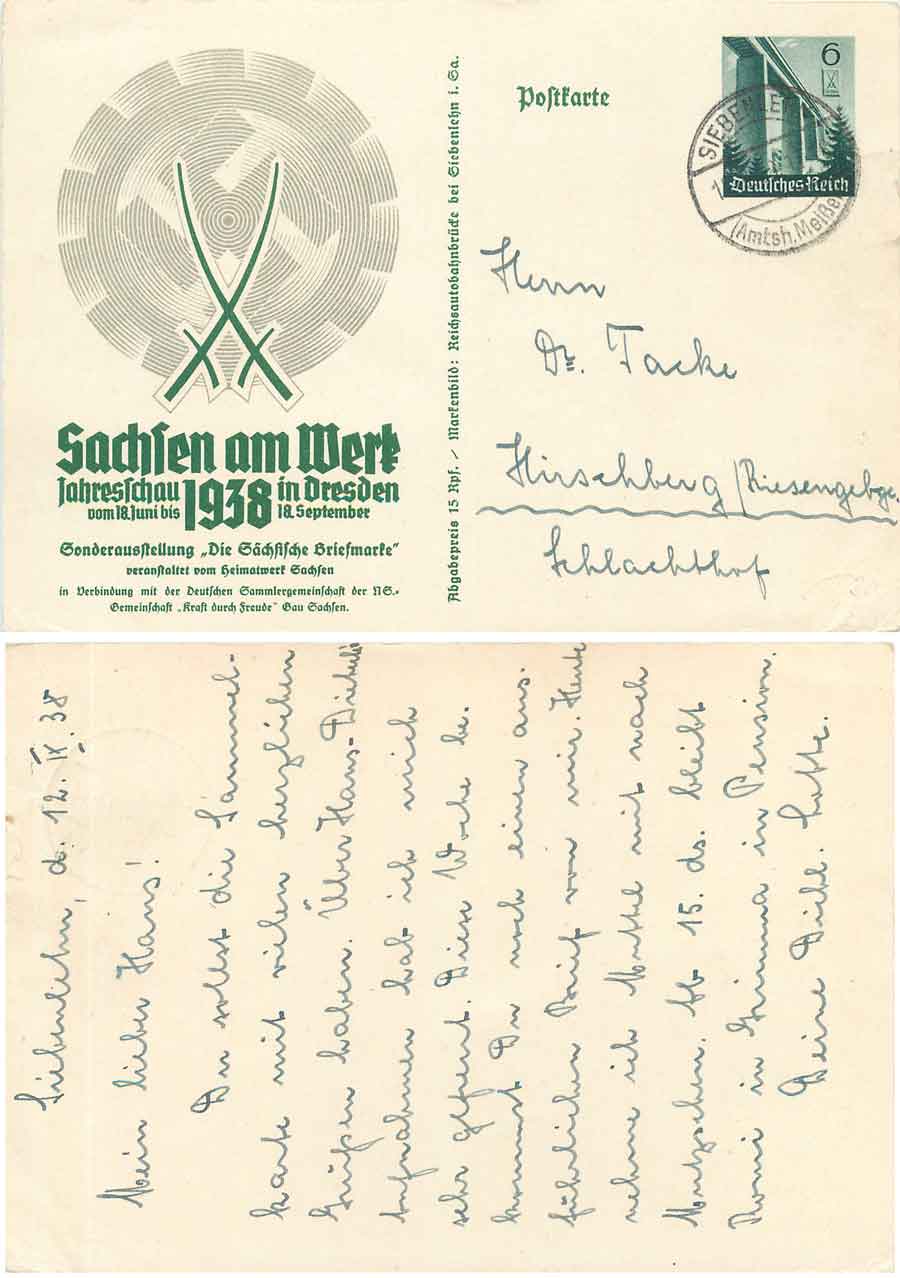 Sachsen am Werk
Jahresschau 1938 in Dresden
vom 18. Juni bis 18. September
Sonderausstellung „Die Sächsische Briefmarke"
veranstaltet vom Heimatwerk Sachsen
in Verbindung mit der Deutschen Sammlergemeinschaft der NS.-
Gemeinschaft „Kraft durch Freude" Gau Sachsen.
Abgabepreis 15 Rpf. / Markenbild: Reichsautobahnbrücke bei Siebenlehn i. Sa.
Postkarte
6
Deutsches Reich
SIEBENLE
(Amtsh. Meiße
Herrn
Dr. Tacke
Hirschberg / Riesengebge.
Schlachthof
Siebenlehn, d. 12. IX. 38
Mein lieber Hans!
Du sollst die Sammel-
karte mit vielen herzlichen
Grüßen haben. Über Hans-
Aufnahmen hab ich mich
sehr gefreut. Diese Woche be-
kommst Du noch einen aus-
führlichen Brief von mir. Heute
nehme ich mit nach
Mutzschen. Ab 15. ds. bleibt
Romi in Grimma in Pension.
Deine Lotte.